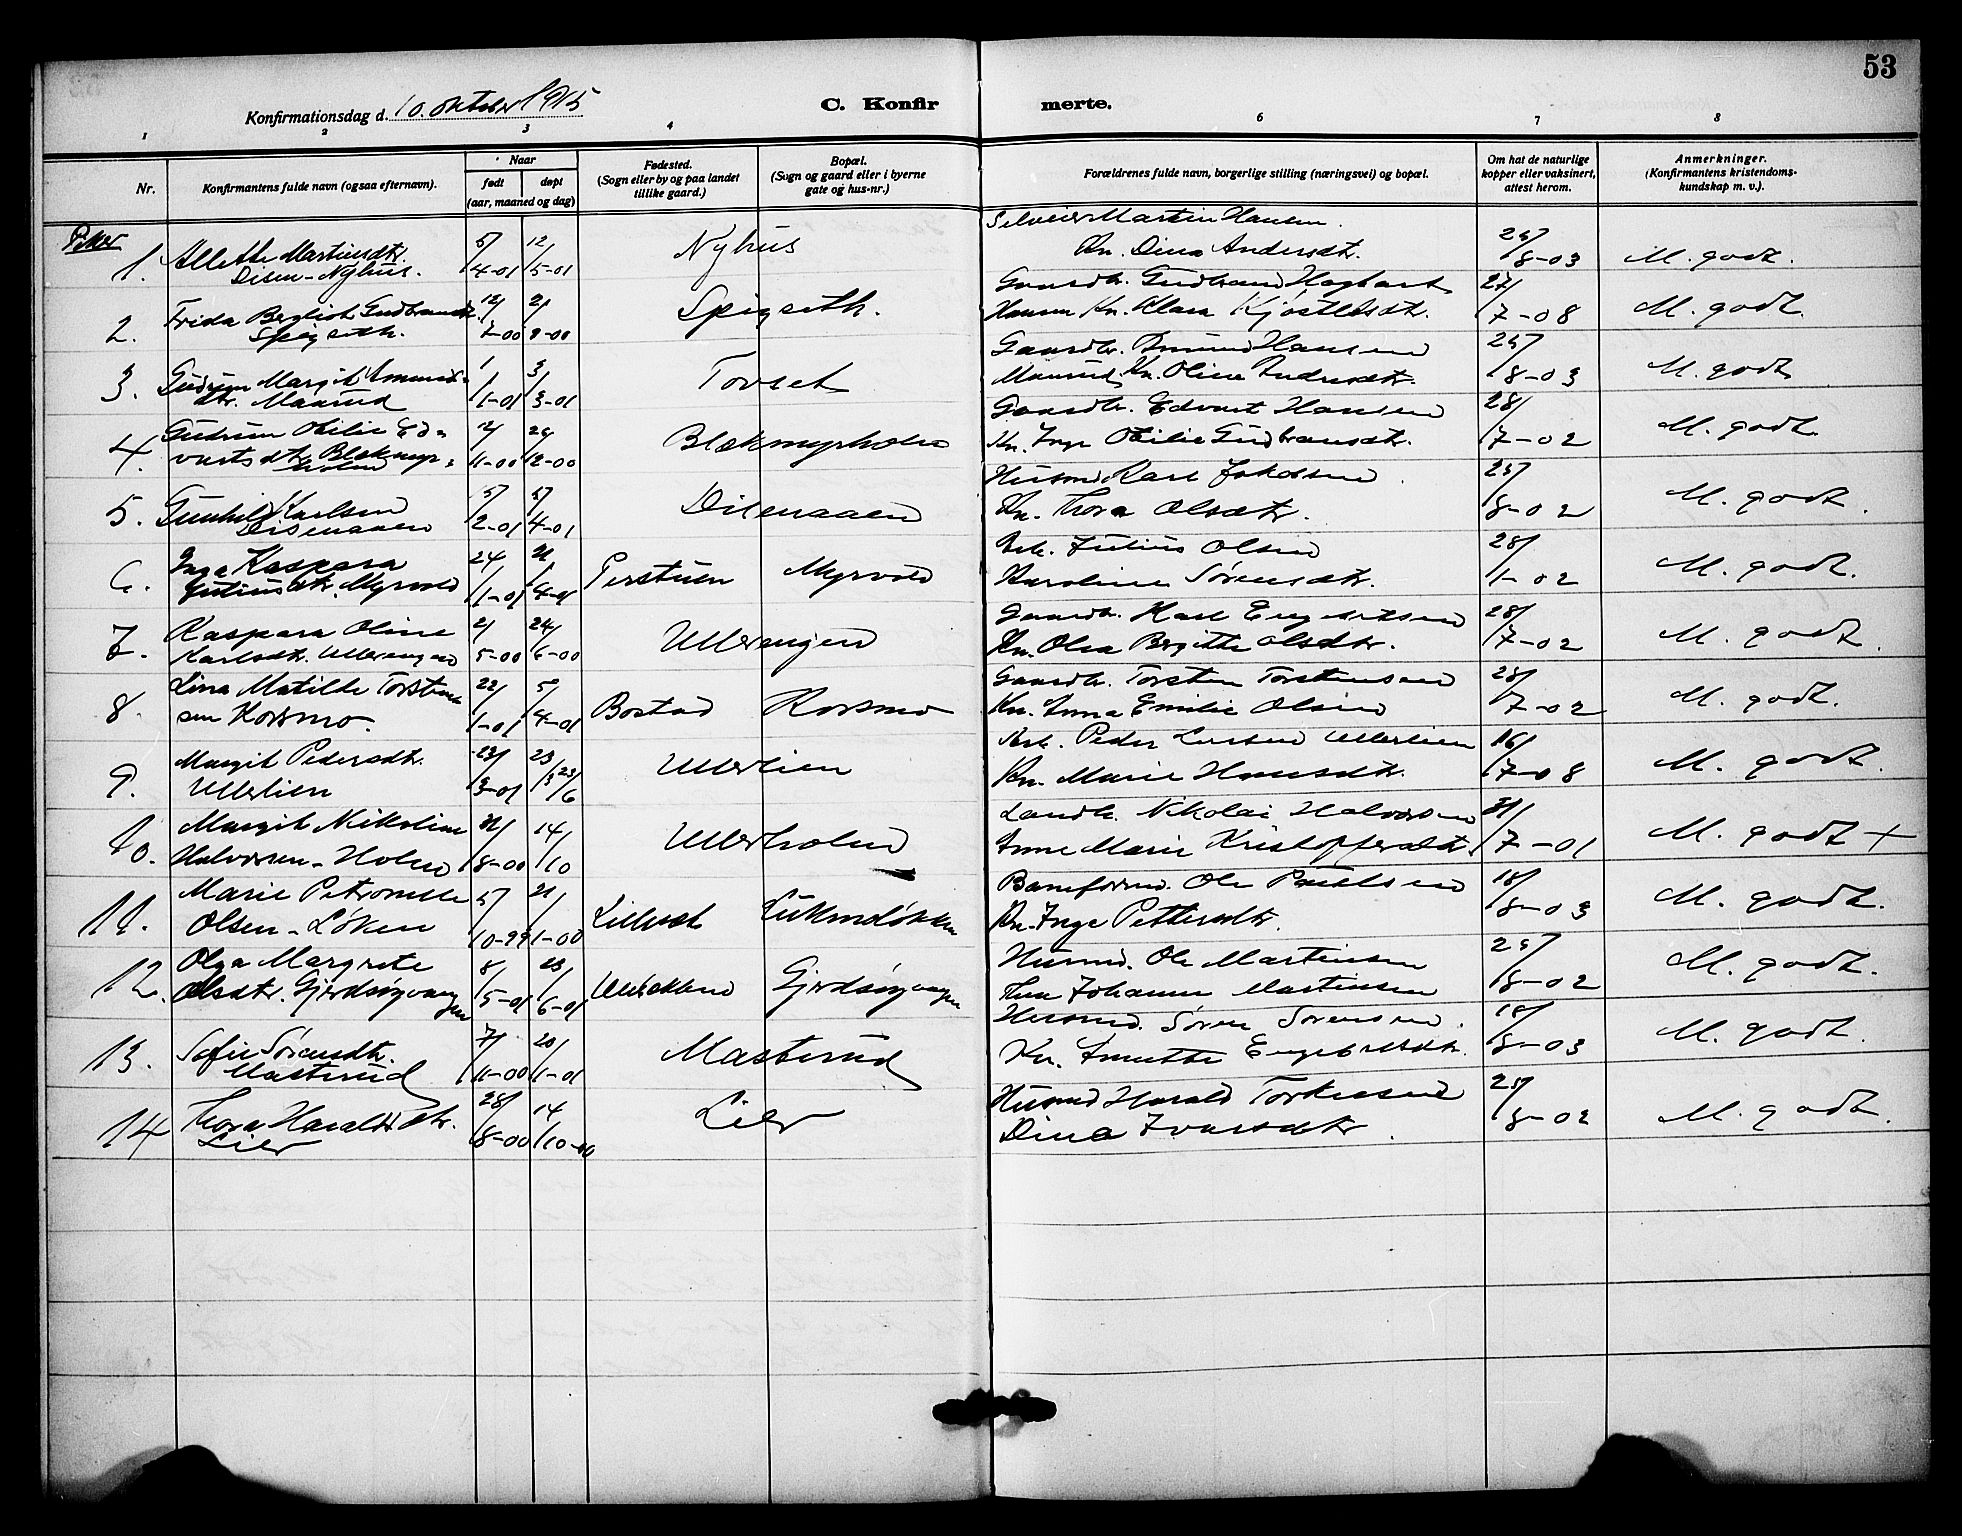 53
Konfirmationsdag d. 10. oktober 1915
C. Konfirmerte.
1 2 3 4 6 7 8
Nr.
Konfirmantens fulde navn (ogsaa efternavn).
Naar
født døpt
(aar, maaned og dag)
Fødested.
(Sogn eller by og paa landet
tillike gaard.)
Bopæl.
(Sogn og gaard eller i byerne
gate og hus-nr.)
Forældrenes fulde navn, borgerlige stilling (næringsvei) og bopæl.
Om hat de naturlige
kopper eller vaksinert,
attest herom.
Anmerkninger.
(Konfirmantens kristendoms-
kundskap m. v.).
Piker
1. Allette Martinsdtr. 5/4-01 12/5-01 Nyhus Selveier Martin Hansen 25/8-03 M. godt.
Disen-Nyhus. Kn. Dina Andersdtr.
2. Frida Gudbrandsdtr. 12/7-00 Spigseth. Gaardbr. Gudbrand Hagbart 27/7-08 M. godt.
Spigseth. Hansen Kn. Klara Kjöstelsdtr.
3. Gudrun Margit Amunds- 1/1-01 3/3-01 Torset Gaardbr. Amund Hansen 25/8-03 M. godt
dtr. Maarud Maarud, Kn. Oline Andersdtr.
4. Gudrun Otilie Ed- 12/11-00 26/12-00 Blekmyrholen Gaardbr. Edvart Hansen 28/7-02 M. godt.
vartsdtr. Blekmyr- Kn. Inge Otilie Gudbrandsdtr.
holen
5. Gunhild Karlsen 5/2-01 5/4-01 Disenaaen Husmd Karl Jakobsen 25/8-02 M. godt.
Disenaaen Kn. Thora Olsdtr.
6. Inga Kaspara 24/1-01 Perstuen Myrvold Arb. Julius Olsen 28/1-02 M. godt.
Juliusdtr. Myrvold Karoline Sørensdtr.
7. Kaspara Oline 2/5-00 24/6-00 Ullerengen Gaardbr. Karl Engebretsen 28/7-02 M. godt.
Karlsdtr. Ullerengen Kn. Olea Bergitte Olsdtr.
8. Lina Matilde Torsten- 22/1-01 5/4-01 Bostad Korsmo Gaardbr. Torsten Torstensen 28/7-02 M. godt.
sen Korsmo. Kn. Anna Emilie Olsen
9. Margit Pedersdtr. 23/3-01 23/3 23/6 Ullerlien Arb. Peder Larsen Ullerlien 16/7-08 M. godt.
Ullerlien Kn. Marie Hansdtr.
10. Margit Nikoline 31/8-00 14/10 Ullerholen Landh. Nikolai Halvorsen 31/7-01 M. godt +
Halvorsen-Holen Anne Marie Kristoffersdtr.
11. Marie Petronelle 5/10-99 21/1-00 Lillerset Baneformd. Ole Paulsen 18/8-03 M. godt.
Olsen-Løken Kn. Inge Pettersdtr.
12. Olga Margrete 8/5-01 23/6-01 Gjerdsingvangen Husmd. Ole Martinsen 25/8-02 M. godt.
Olsdtr. Gjerdsingvangen Johanne Martinsen
13. Sofie Sørensdtr. 7/11-00 20/1-01 Masterud Husmd. Søren Sørensen. 18/8-03 M. godt.
Masterud Kn. Anette Engebretsdtr.
14 Thora Haraldsdtr. 28/8-00 14/10-00 Lier Husmd Harald Torkelsen 25/8-02 M. godt.
Lier Dina Ivarsdtr.